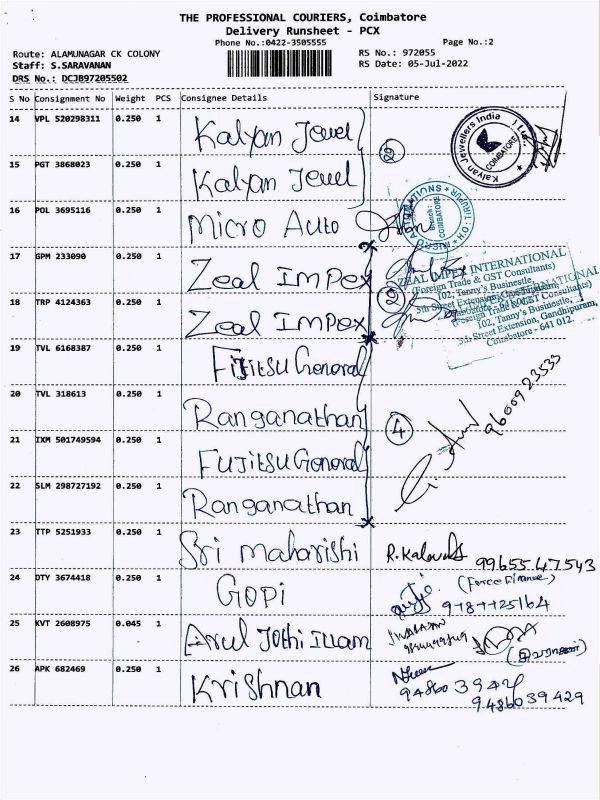 THE PROFESSIONAL COURIERS, Coimbatore
Delivery Runsheet - PCX
Phone No.:0422-3505555 Page No.:2
Route: ALAMUNAGAR CK COLONY RS No.: 972055
Staff: S.SARAVANAN RS Date: 05-Jul-2022
DRS No.: DCJB97205502
S No Consignment No Weight PCS Consignee Details Signature
14 VPL 520298311 0.250 1 Kalyan Jewel
Kalyan Jewellers India COIMBATORE
15 PGT 3868023 0.250 1 Kalyan Jewel
16 POL 3695116 0.250 1 Micro Auto
Branch: COIMBATORE
17 GPM 233090 0.250 1 Zeal Impex
ZEAL IMPEX INTERNATIONAL
(Foreign Trade & GST Consultants)
102, Tanny's Businestle,
5th Street Extension, Gandhipuram,
Coimbatore - 641 012.
18 TRP 4124363 0.250 1 Zeal Impex
19 TVL 6168387 0.250 1 Fujitsu General
20 TVL 318613 0.250 1 Ranganathan 4 9600923533
21 IXM 501749594 0.250 1 Fujitsu General
22 SLM 298727192 0.250 1 Ranganathan
23 TTP 5251933 0.250 1 Sri Maharishi 99655 47543
24 DTY 3674418 0.250 1 Gopi (Force Finance)
9787725164
25 KVT 2608975 0.045 1 Arul Jothi Illam
26 APK 682469 0.250 1 Krishnan
94860 39429